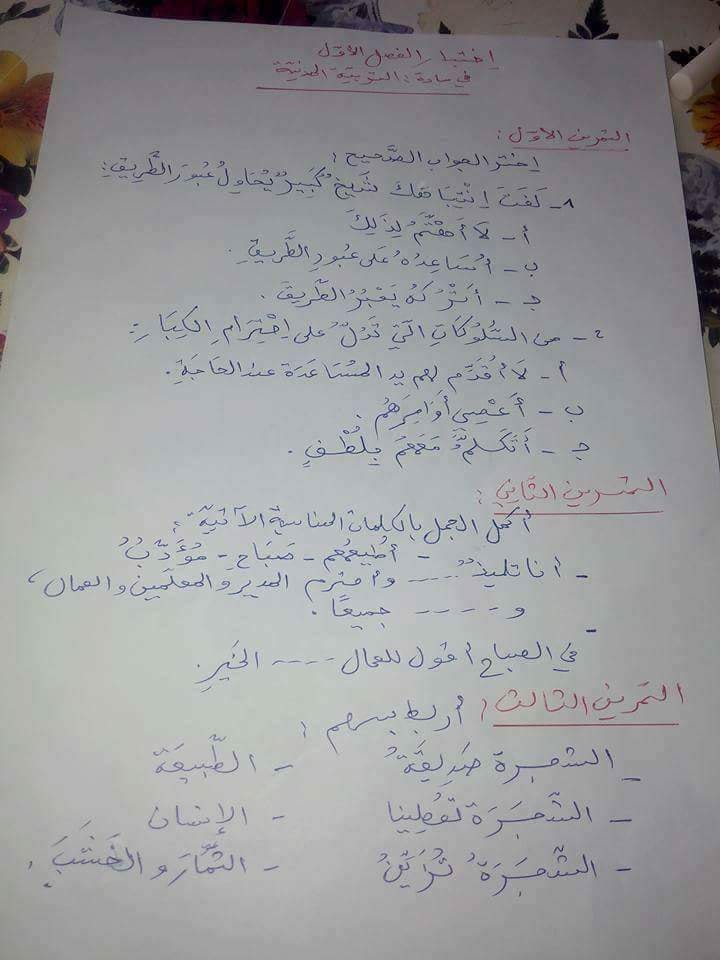 اختبار الفصل الأول
في مادة: التربية المدنية
التمرين الأول:
اختر الجواب الصَّحيح:
1- لَفَتَ اِنْتِبَاهَكَ شَيْخٌ كَبِيرٌ يُحَاوِلُ عُبُورَ الطَّرِيقِ:
أ- لَا أَهْتَمُّ لِذَلِكَ
ب- أُسَاعِدُهُ عَلَى عُبُورِ الطَّرِيقِ.
ج- أَتْرُكُهُ يَعْبُرُ الطَّرِيقَ.
2- من السُّلُوكَاتِ الَّتِي تَدُلُّ على اِحْتِرَامِ الكِبَارِ:
أ- لَا أُقَدِّم لهم يد المُسَاعَدَة عند الحَاجَةِ.
ب- أَعْصِي أَوَامِرَهُم.
ج- أَتَكَلَّمُ مَعَهُمْ بِلُطْفٍ.
التمرين الثاني:
أكمل الجمل بالكلمات المناسبة الآتية:
أطيعهم - صَبَاح - مُؤَدَّبٌ
- أنا تلميذٌ ---- وأحترم المدير والمعلمين والعمال،
و ---- جميعًا.
- في الصباح أقول للعمال ---- الخَيْرِ.
التمرين الثالث: أربط بسهم:
- الشجرة صَدِيقَةُ - الطَّبِيعَة
- الشَّجَرَة تُعْطِينا - الإنسان
- الشَّجَرَةُ تُزَيِّنُ - الثِّمَارَ و الخَشَبَ.